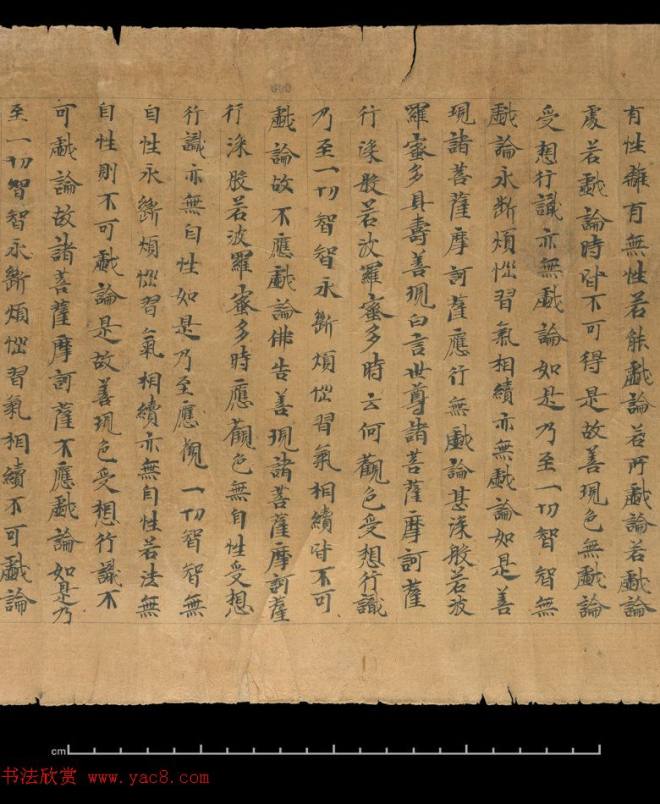 有性離有無性若能戲論若所戲論若戲論
處若戲論時皆不可得是故善現色無戲論
受想行識亦無戲論如是乃至一切智智無
戲論永斷煩惱習氣相續亦無戲論如是善
現諸菩薩摩訶薩應行無戲論甚深般若波
羅蜜多具壽善現白言世尊諸菩薩摩訶薩
行深般若波羅蜜多時云何觀色受想行識
乃至一切智智永斷煩惱習氣相續皆不可
戲論故不應戲論佛告善現諸菩薩摩訶薩
行深般若波羅蜜多時應觀色無自性受想
行識亦無自性如是乃至應觀一切智智無
自性永斷煩惱習氣相續亦無自性若法無
自性則不可戲論是故善現色受想行識不
可戲論故諸菩薩摩訶薩不應戲論如是乃
至一切智智永斷煩惱習氣相續不可戲論
cm
书法欣赏 www.yac8.com